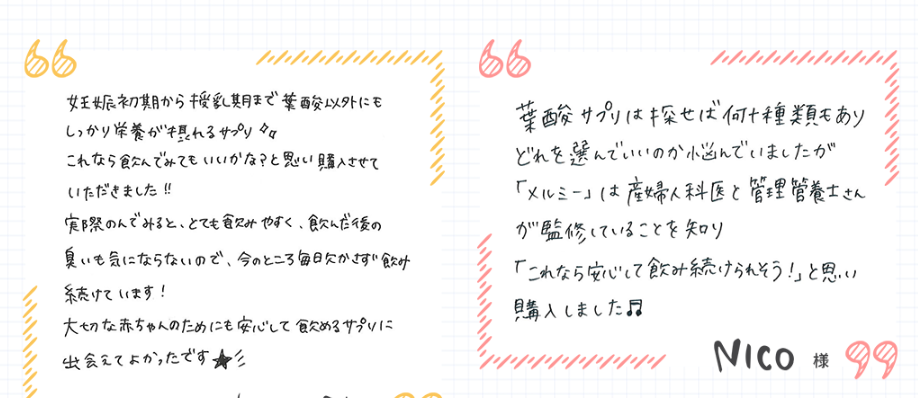 妊娠初期から授乳期まで葉酸以外にも
しっかり栄養が摂れるサプリ✨
これなら飲んでみてもいいかな?と思い購入させて
いただきました!!
実際のんでみると、とても飲みやすく、飲んだ後の
臭いも気にならないので、今のところ毎日欠かさず飲み
続けています!
大切な赤ちゃんのためにも安心して飲めるサプリに
出会えてよかったです★彡
葉酸サプリは探せば何十種類もあり
どれを選んでいいのか悩んでいましたが
「メルミー」は産婦人科医と管理管養士さん
が監修していることを知り
「これなら安心して飲み続けられそう!」と思い
購入しました♫
NICO 様